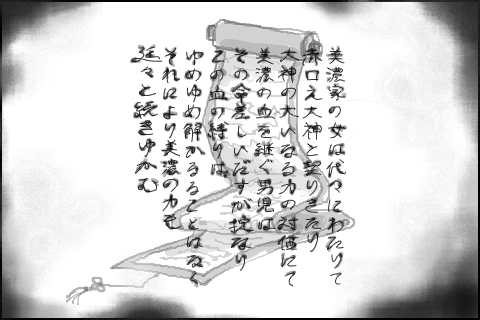 美濃家の女は代々にわたりて
赤口え大神と契りきたり
大神の大いなる力の対価にて
美濃の血を継ぐ男児は
その命差しいだすが掟なり
この血の縛りは
ゆめゆめ解かるることはなく
それにより美濃の力も
延々と続きゆかむ